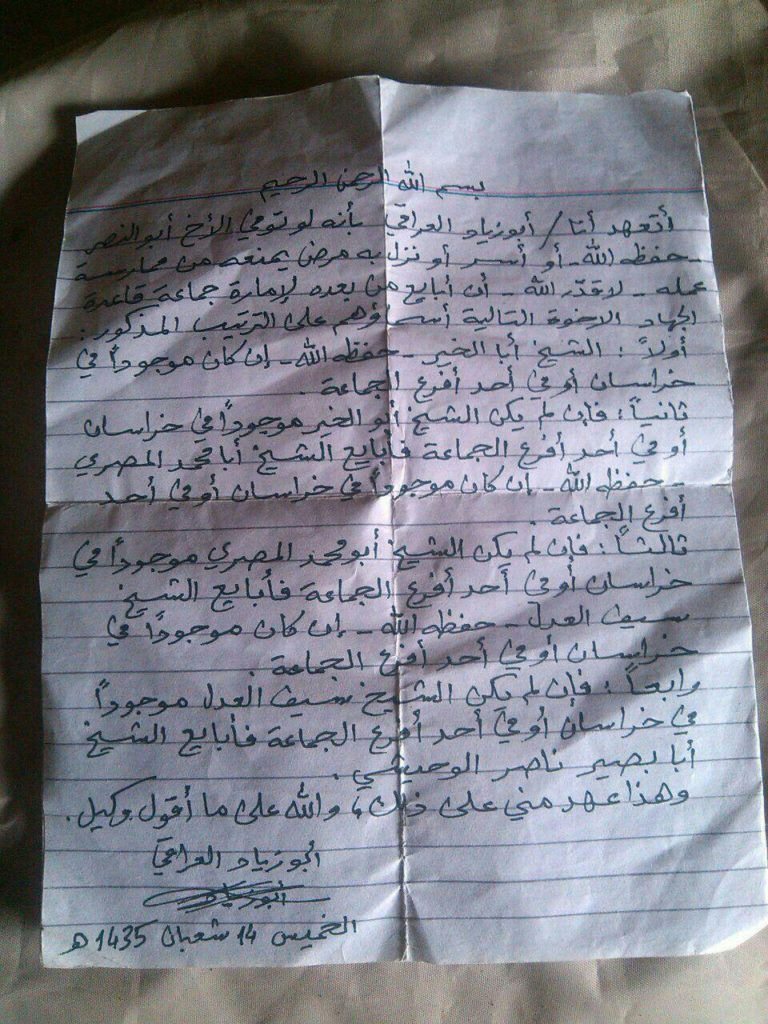 بسم الله الرحمن الرحيم
أتعهد أنا/ أبو زياد العراقي بأنه لو توفي الأخ أبو النصر
- حفظه الله - أو أسر أو نزل به مرض يمنعه من ممارسة
عمله - لا قدّر الله - أن أبايع من بعده لإمارة جماعة قاعدة
الجهاد الإخوة التالية أسماؤهم على الترتيب المذكور:
أولاً: الشيخ أبا الخير - حفظه الله - إن كان موجوداً في
خراسان أو في أحد أفرع الجماعة.
ثانياً: فإن لم يكن الشيخ أبو الخير موجوداً في خراسان
أو في أحد أفرع الجماعة فأبايع الشيخ أبا محمد المصري
- حفظه الله - إن كان موجوداً في خراسان أو في أحد
أفرع الجماعة.
ثالثاً: فإن لم يكن الشيخ أبو محمد المصري موجوداً في
خراسان أو في أحد أفرع الجماعة فأبايع الشيخ
سيف العدل - حفظه الله - إن كان موجوداً في
خراسان أو في أحد أفرع الجماعة.
رابعاً: فإن لم يكن الشيخ سيف العدل موجوداً
في خراسان أو في أحد أفرع الجماعة فأبايع الشيخ
أبا بصير ناصر الوحيشي.
وهذا عهد مني على ذلك، والله على ما أقول وكيل.
أبو زياد العراقي
أبو زياد
الخميس 14 شعبان 1435 هـ